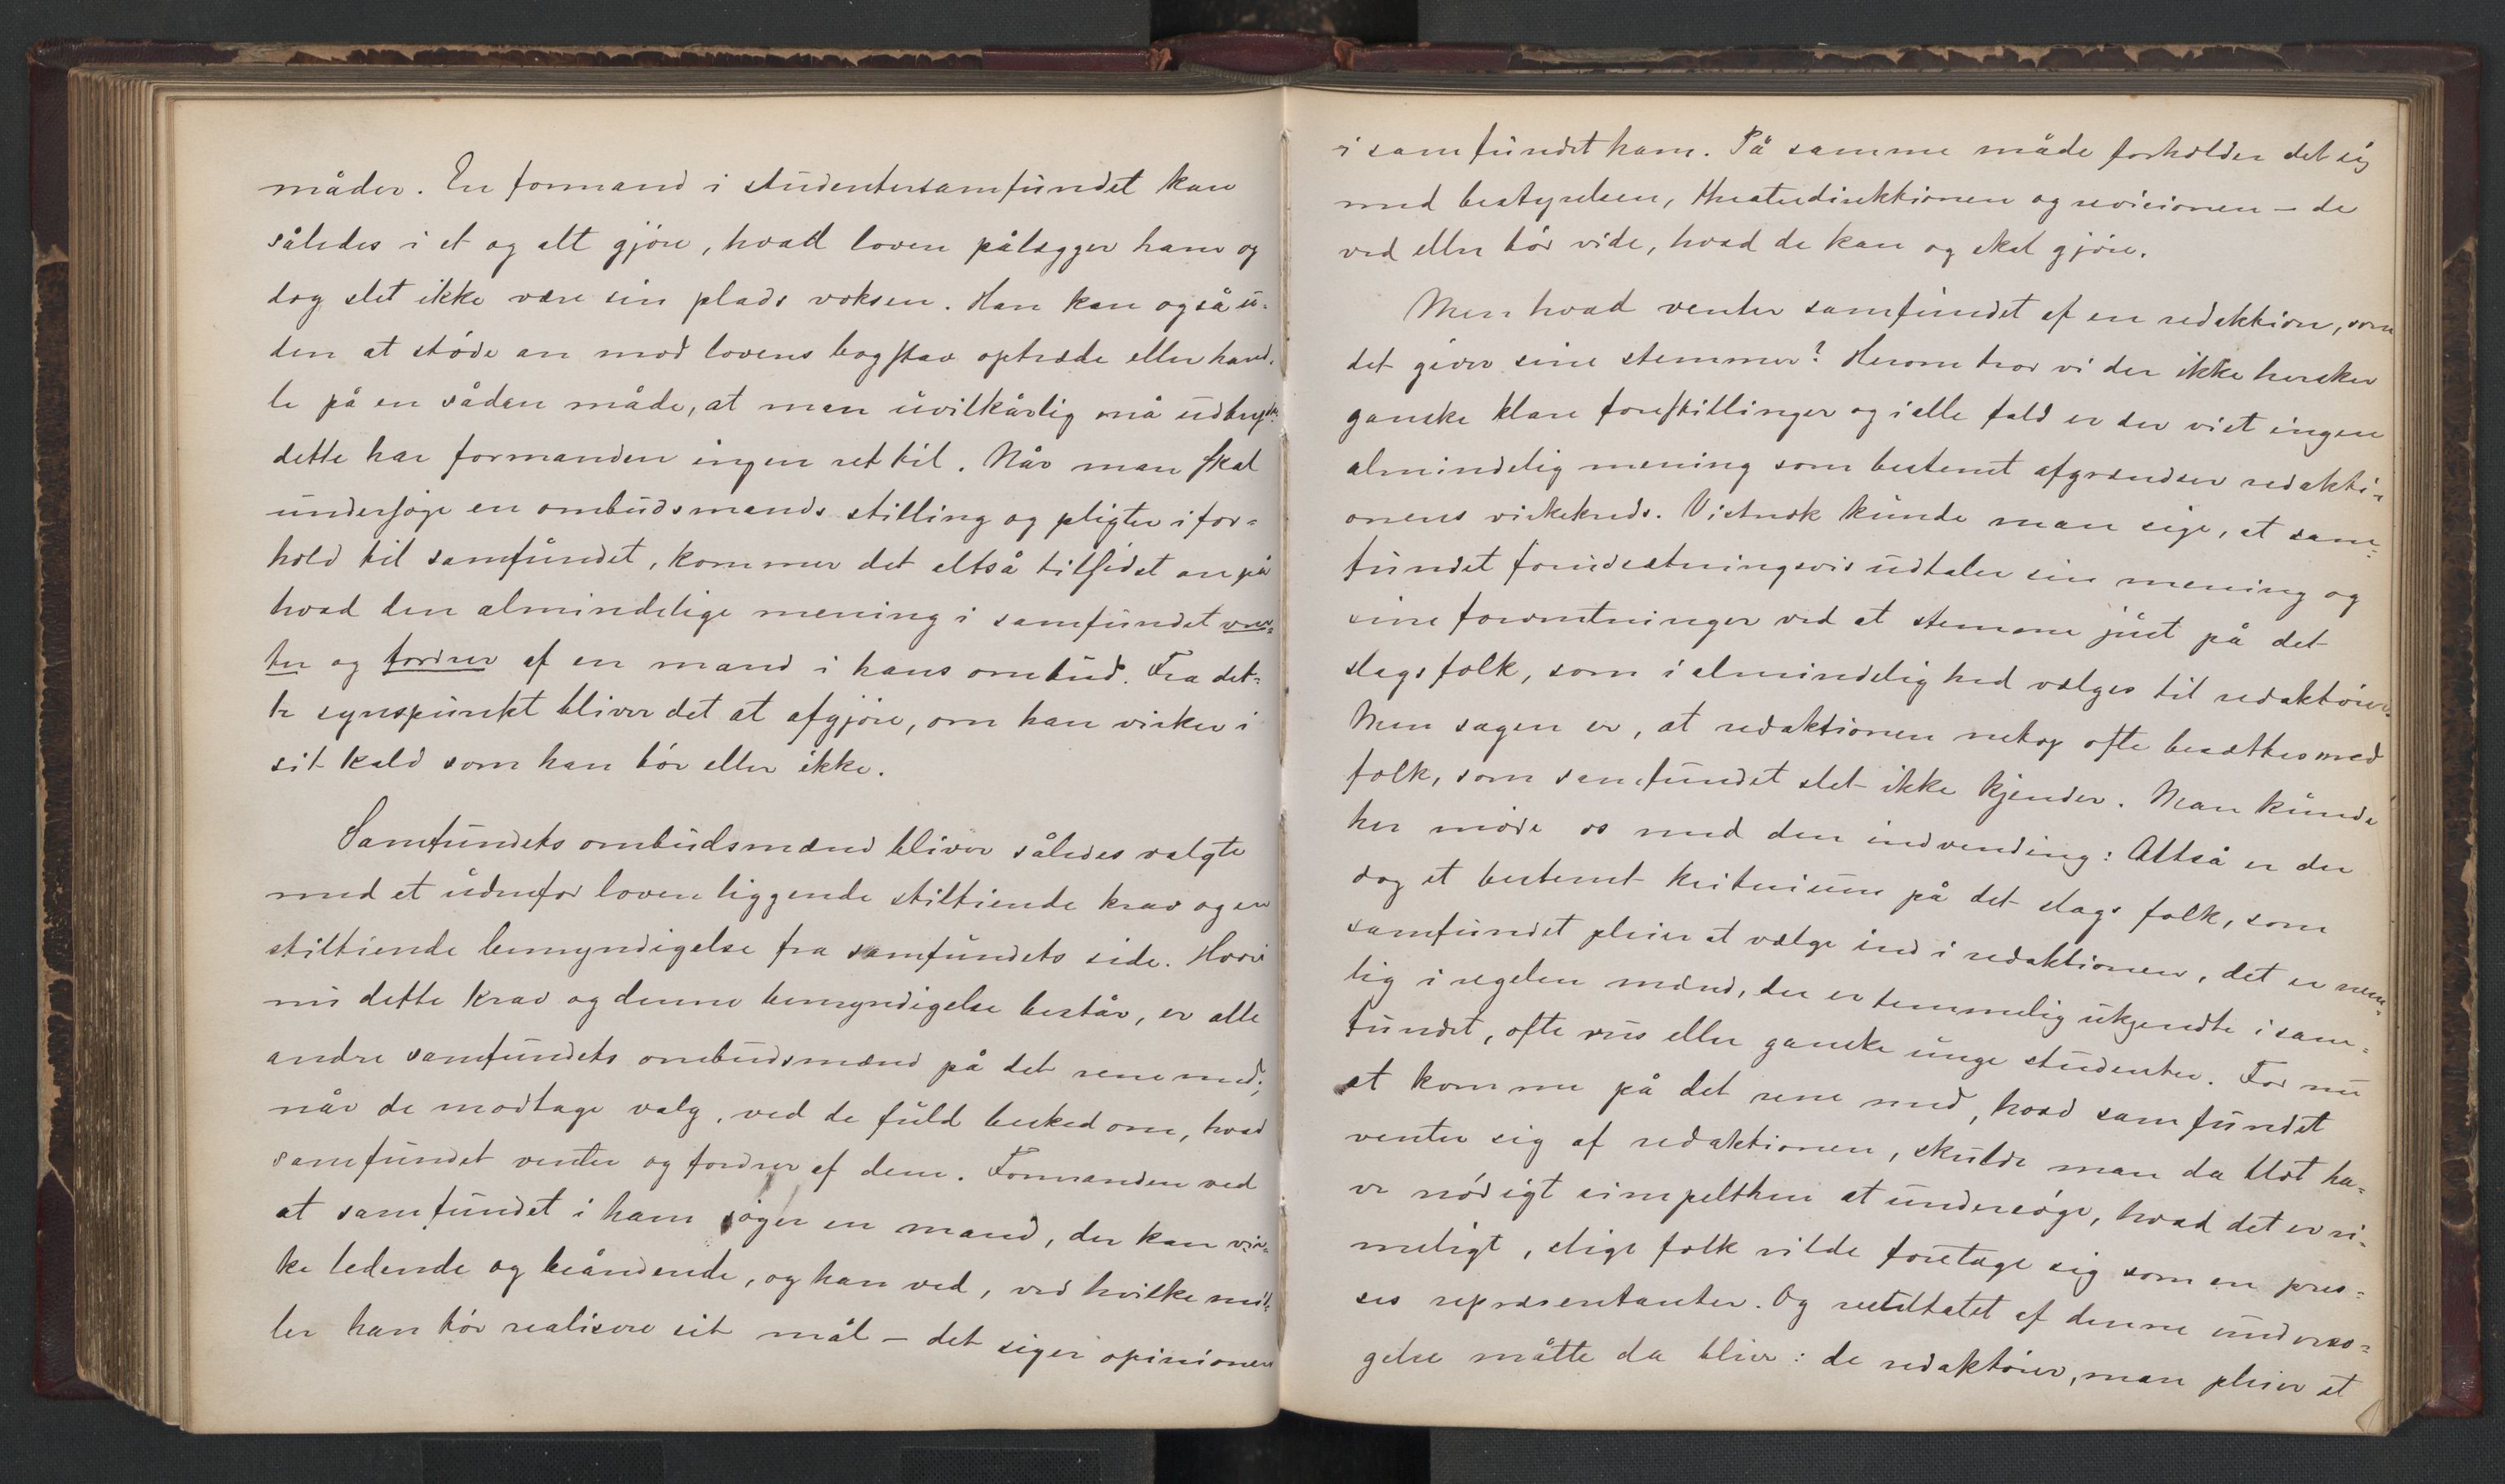 måder. En formand i studentersamfundet kan
således i et og alt gjøre, hvad loven pålægger ham og
dog slet ikke være sin plads voksen. Han kan også u-
den at støde an mod lovens bogstav optræde eller hand-
le på en sådan måde, at man uvilkårlig må udbryde:
dette har formanden ingen ret til. Når man skal
undersøge en ombudsmands stilling og pligter i for-
hold til samfundet, kommer det altså tilsidst an på
hvad den almindelige mening i samfundet ven-
ter og fordrer af en mand i hans ombud. Fra det-
te synspunkt bliver det at afgjøre, om han virker i
sit kald som han bør eller ikke.
Samfundets ombudsmænd bliver således valgte
med et udenfor loven liggende stiltiende krav og en
stiltiende bemyndigelse fra samfundets side. Hvori
nu dette krav og denne bemyndigelse består, er alle
andre samfundets ombudsmænd på det rene med;
når de modtage valg, ved de fuld besked om, hvad
samfundet venter og fordrer af dem. Formanden ved
at samfundet i ham søger en mand, der kan vir-
ke ledende og beåndende, og han ved, ved hvilke mid-
ler han bør realisere sit mål – det siger opinionen
i samfundet ham. På samme måde forholder det sig
med bestyrelsen, theaterdirektionen og revisionen – de
ved eller bør vide, hvad de kan og skal gjøre.
Men hvad venter samfundet af en redaktion, som
det giver sine stemmer? Herom tror vi der ikke hersker
ganske klare forestillinger og i alle fald er der vist ingen
almindelig mening som bestemt afgrændser redakti-
onens virkekreds. Vistnok kunde man sige, at sam-
fundet forudsætningsvis udtaler sin mening og
sine forventninger ved at stemme just på det
slags folk, som i almindelighed vælges til redaktører.
Men sagen er, at redaktionen netop ofte besættes med
folk, som samfundet slet ikke kjender. Man kunde
her møde os med den indvending: Altså er der
dog et bestemt kriterium på det slags folk, som
samfundet pleier at vælge ind i redaktionen, det er nem-
lig i regelen mænd, der er temmelig ukjendte i sam-
fundet, ofte rus eller ganske unge studenter. For nu
at komme på det rene med, hvad samfundet
venter sig af redaktionen, skulde man da blot ha-
ve nødigt simpelthen at undersøge, hvad det er ri-
meligt, slige folk vilde foretage sig som en pres-
ses repræsentanter. Og resultatet af denne undersø-
gelse måtte da blive: de redaktører, man pleier at